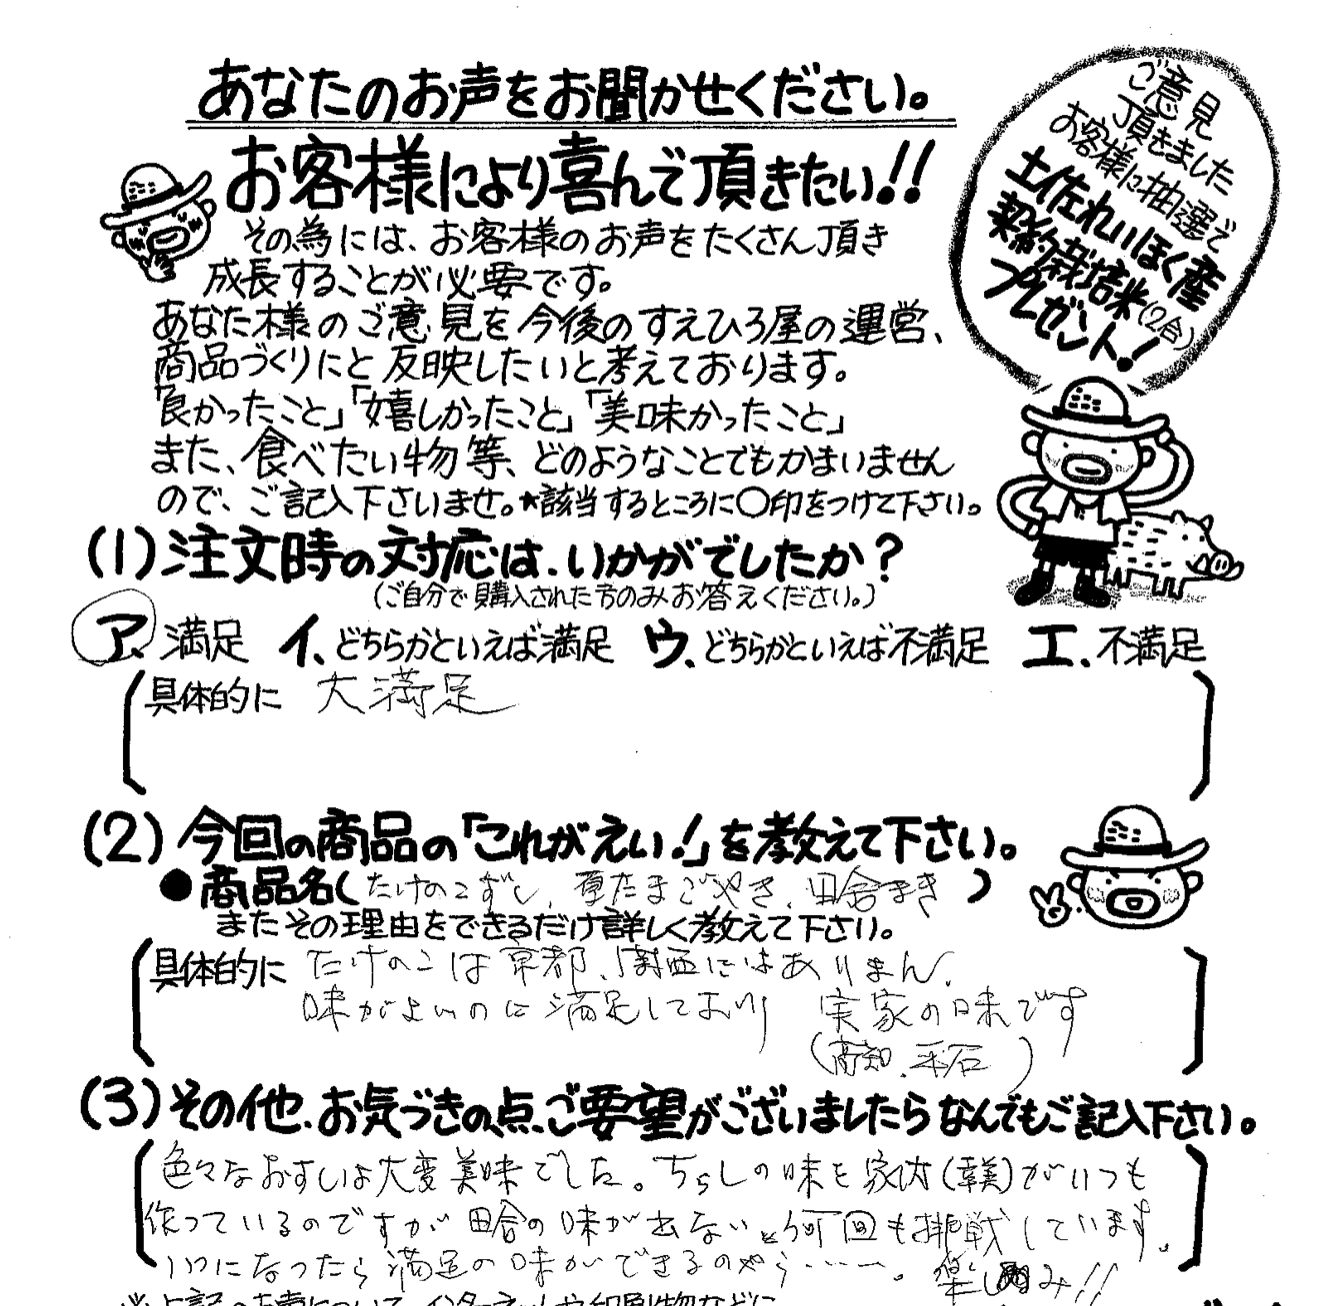 あなたのお声をお聞かせください。
お客様により喜んで頂きたい!!
その為には、お客様のお声をたくさん頂き
成長することが必要です。
あなた様のご意見を今後のすえひろ屋の運営、
商品づくりにと反映したいと考えております。
「良かったこと」「嬉しかったこと」「美味かったこと」
また、食べたい物等、どのようなことでもかまいません
ので、ご記入下さいませ。★該当するところに〇印をつけて下さい。
ご意見
頂きました
お客様に抽選で
土佐れいほく産
契約栽培米(2合)
プレゼント!
(1)注文時の対応は、いかがでしたか?
(ご自分で購入された方のみお答えください。)
ア、満足 イ、どちらかといえば満足 ウ、どちらかといえば不満足 エ、不満足
具体的に 大満足
(2)今回の商品の「これがえい!」を教えて下さい。
●商品名(たけのこずし、厚たまごやき、田舎まき)
またその理由をできるだけ詳しく教えて下さい。
具体的に たけのこは京都、関西にはありません。
味がよいのに満足しており 実家の味です
(高知、)
(3)その他、お気づきの点、ご要望がございましたらなんでもご記入下さい。
色々なおすしは大変美味でした。ちらしの味を家内()がいつも
作っているのですが田舎の味が出ないと何回も挑戦しています。
いつになったら満足の味ができるのやら……。楽しみ!!
※上記のお声について、インターネットや印刷物などに